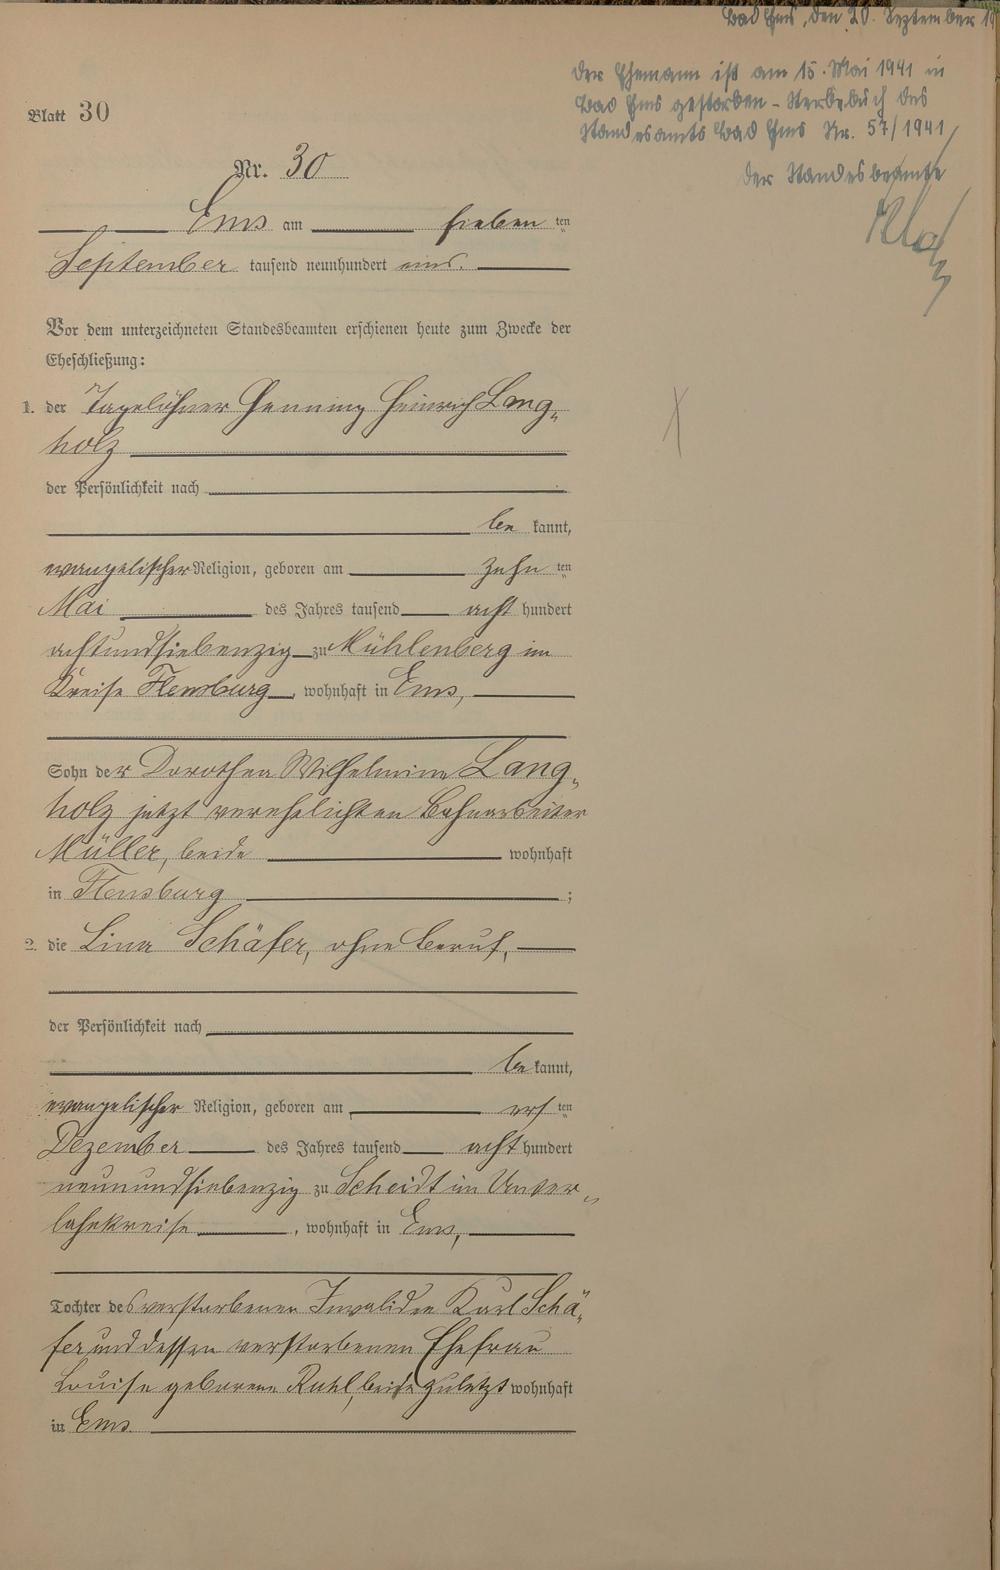 Bad Ems, den 20. September 19
Der Ehemann ist am 15. Mai 1941 in
Bad Ems gestorben - Sterbebuch des
Standesamts Bad Ems Nr. 57/1941
Der Standesbeamte
Blatt 30
Nr. 30
Ems am sieben ten
September tausend neunhundert eins.
Vor dem unterzeichneten Standesbeamten erschienen heute zum Zwecke der
Eheschließung:
1. der Tagelöhner Henning Heinrich Lang-
holz
der Persönlichkeit nach
be kannt,
evangelischer Religion, geboren am zehn ten
Mai des Jahres tausend acht hundert
achtundsiebenzig zu Mühlenberg im
Kreise Flensburg, wohnhaft in Ems,
Sohn der Dorothea Wilhelmine Lang-
holz jetzt verehelichten Bahnarbeiter
Müller, beide wohnhaft
in Flensburg ;
2. die Lina Schäfer, ohne Beruf,
der Persönlichkeit nach
be kannt,
evangelischer Religion, geboren am ers ten
Dezember des Jahres tausend acht hundert
neunundsiebenzig zu Scheidt im Unter-
lahnkreise, wohnhaft in Ems,
Tochter des verstorbenen Invaliden Karl Schä-
fer und dessen verstorbenen Ehefrau
Louise geborene Ruhl, beide zuletzt wohnhaft
in Ems.